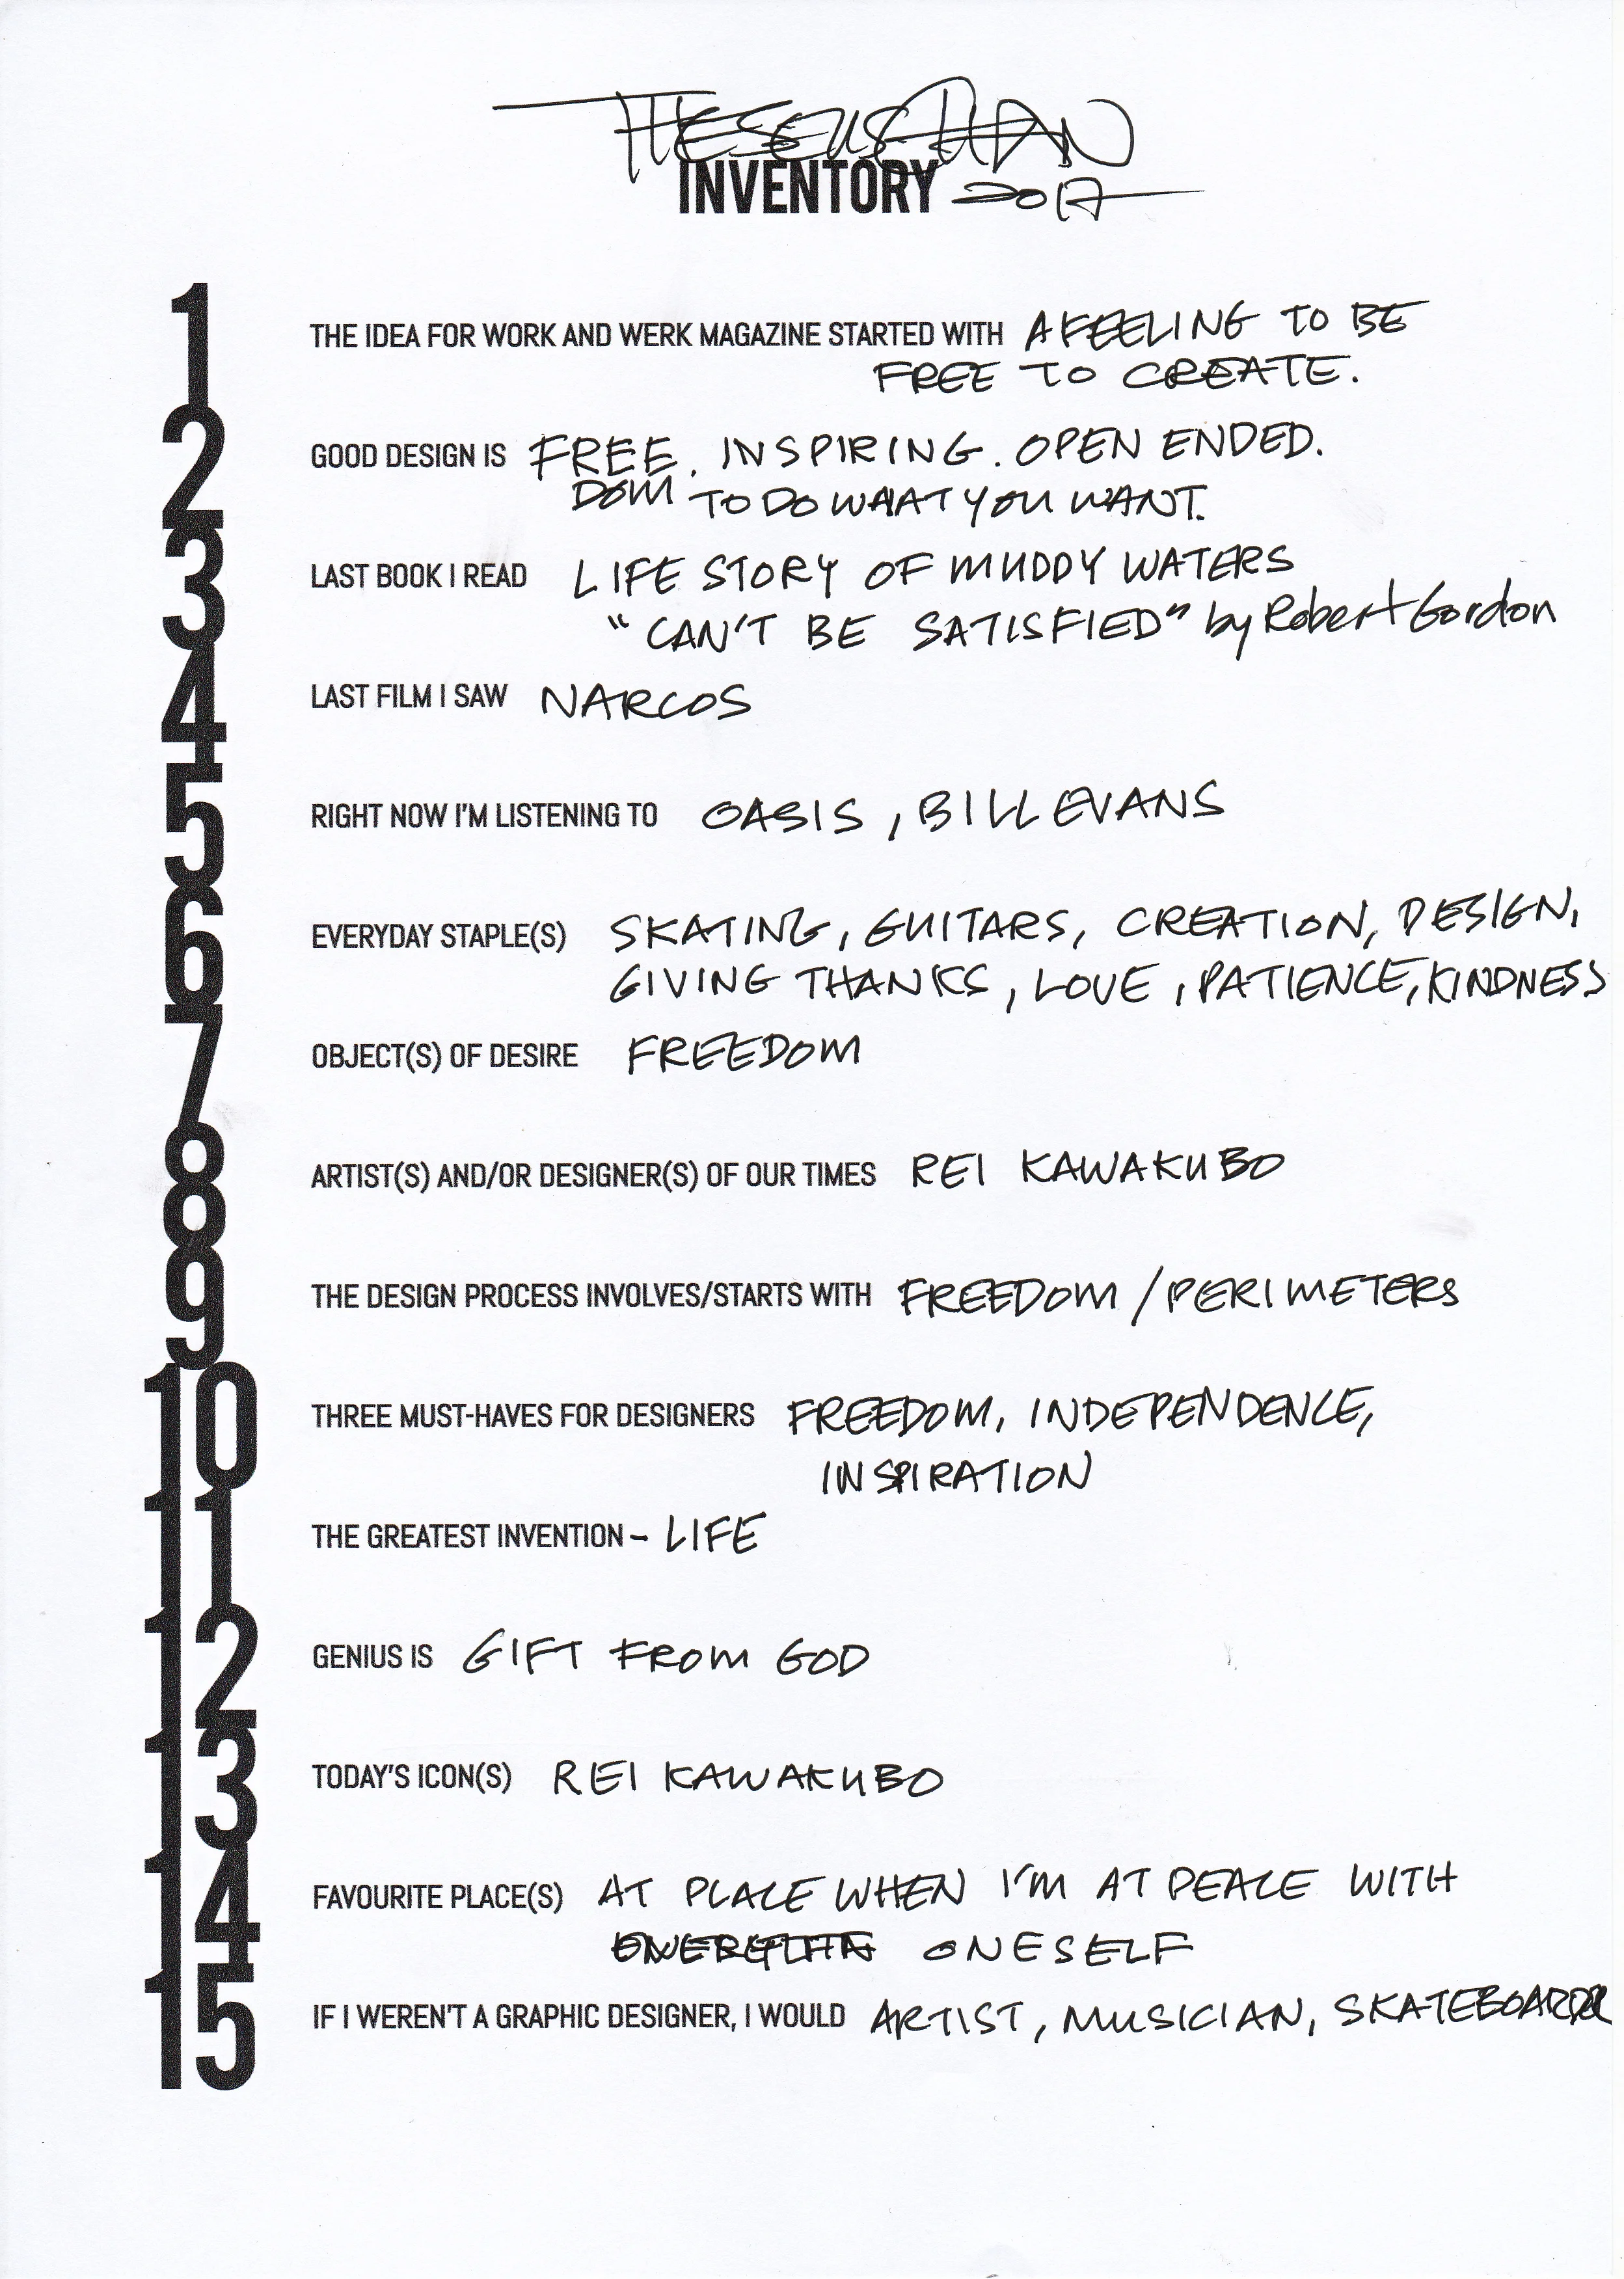 THESEUS CHAN
INVENTORY 2017
1
THE IDEA FOR WORK AND WERK MAGAZINE STARTED WITH A FEELING TO BE
FREE TO CREATE.
2
GOOD DESIGN IS FREE. INSPIRING. OPEN ENDED.
DOM TO DO WHAT YOU WANT.
3
LAST BOOK I READ LIFE STORY OF MUDDY WATERS
"CAN'T BE SATISFIED" by Robert Gordon
4
LAST FILM I SAW NARCOS
5
RIGHT NOW I'M LISTENING TO OASIS, BILL EVANS
6
EVERYDAY STAPLE(S) SKATING, GUITARS, CREATION, DESIGN,
GIVING THANKS, LOVE, PATIENCE, KINDNESS
7
OBJECT(S) OF DESIRE FREEDOM
8
ARTIST(S) AND/OR DESIGNER(S) OF OUR TIMES REI KAWAKUBO
9
THE DESIGN PROCESS INVOLVES/STARTS WITH FREEDOM / PERIMETERS
10
THREE MUST-HAVES FOR DESIGNERS FREEDOM, INDEPENDENCE,
INSPIRATION
11
THE GREATEST INVENTION - LIFE
12
GENIUS IS GIFT FROM GOD
13
TODAY'S ICON(S) REI KAWAKUBO
14
FAVOURITE PLACE(S) AT PLACE WHEN I'M AT PEACE WITH
ONESELF
15
IF I WEREN'T A GRAPHIC DESIGNER, I WOULD ARTIST, MUSICIAN, SKATEBOARDER